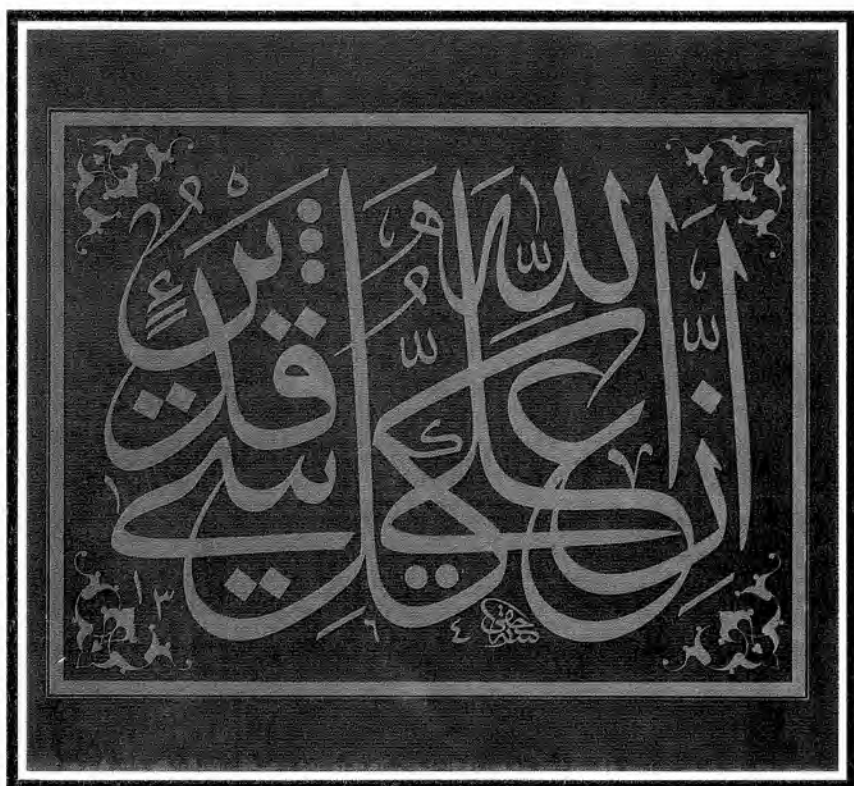 اِنَّ اللّٰهَ عَلٰى كُلِّ شَيْءٍ قَدِيْرٌ
١٣٦٤